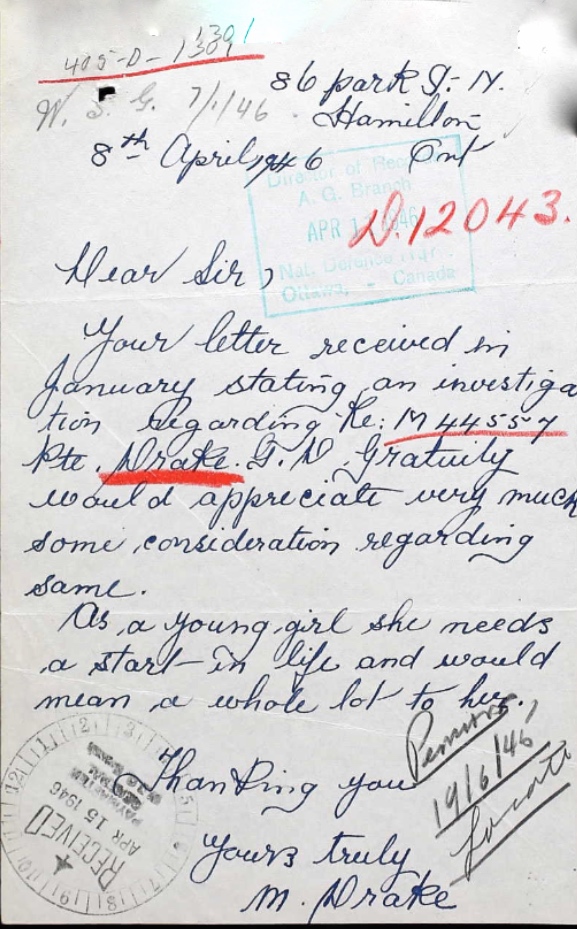 1301
405-D-1301
86 park St. N.
W. S. G. 7/1/46
Hamilton
8th April 1946 Ont
Director of Records
A. G. Branch
APR 1 1946
D.12043.
Nat. Defence Hdqr.
Ottawa, - Canada
Dear Sir,
Your letter received in
January stating an investiga
tion regarding Re: M 44557
Pte. Drake. G. D. Gratuity
would appreciate very much
some consideration regarding
same.
As a young girl she needs
a start in life and would
mean a whole lot to her.
19/6/46
Locate
Thanking you
RECEIVED
APR 15 1946
Yours truly
M. Drake